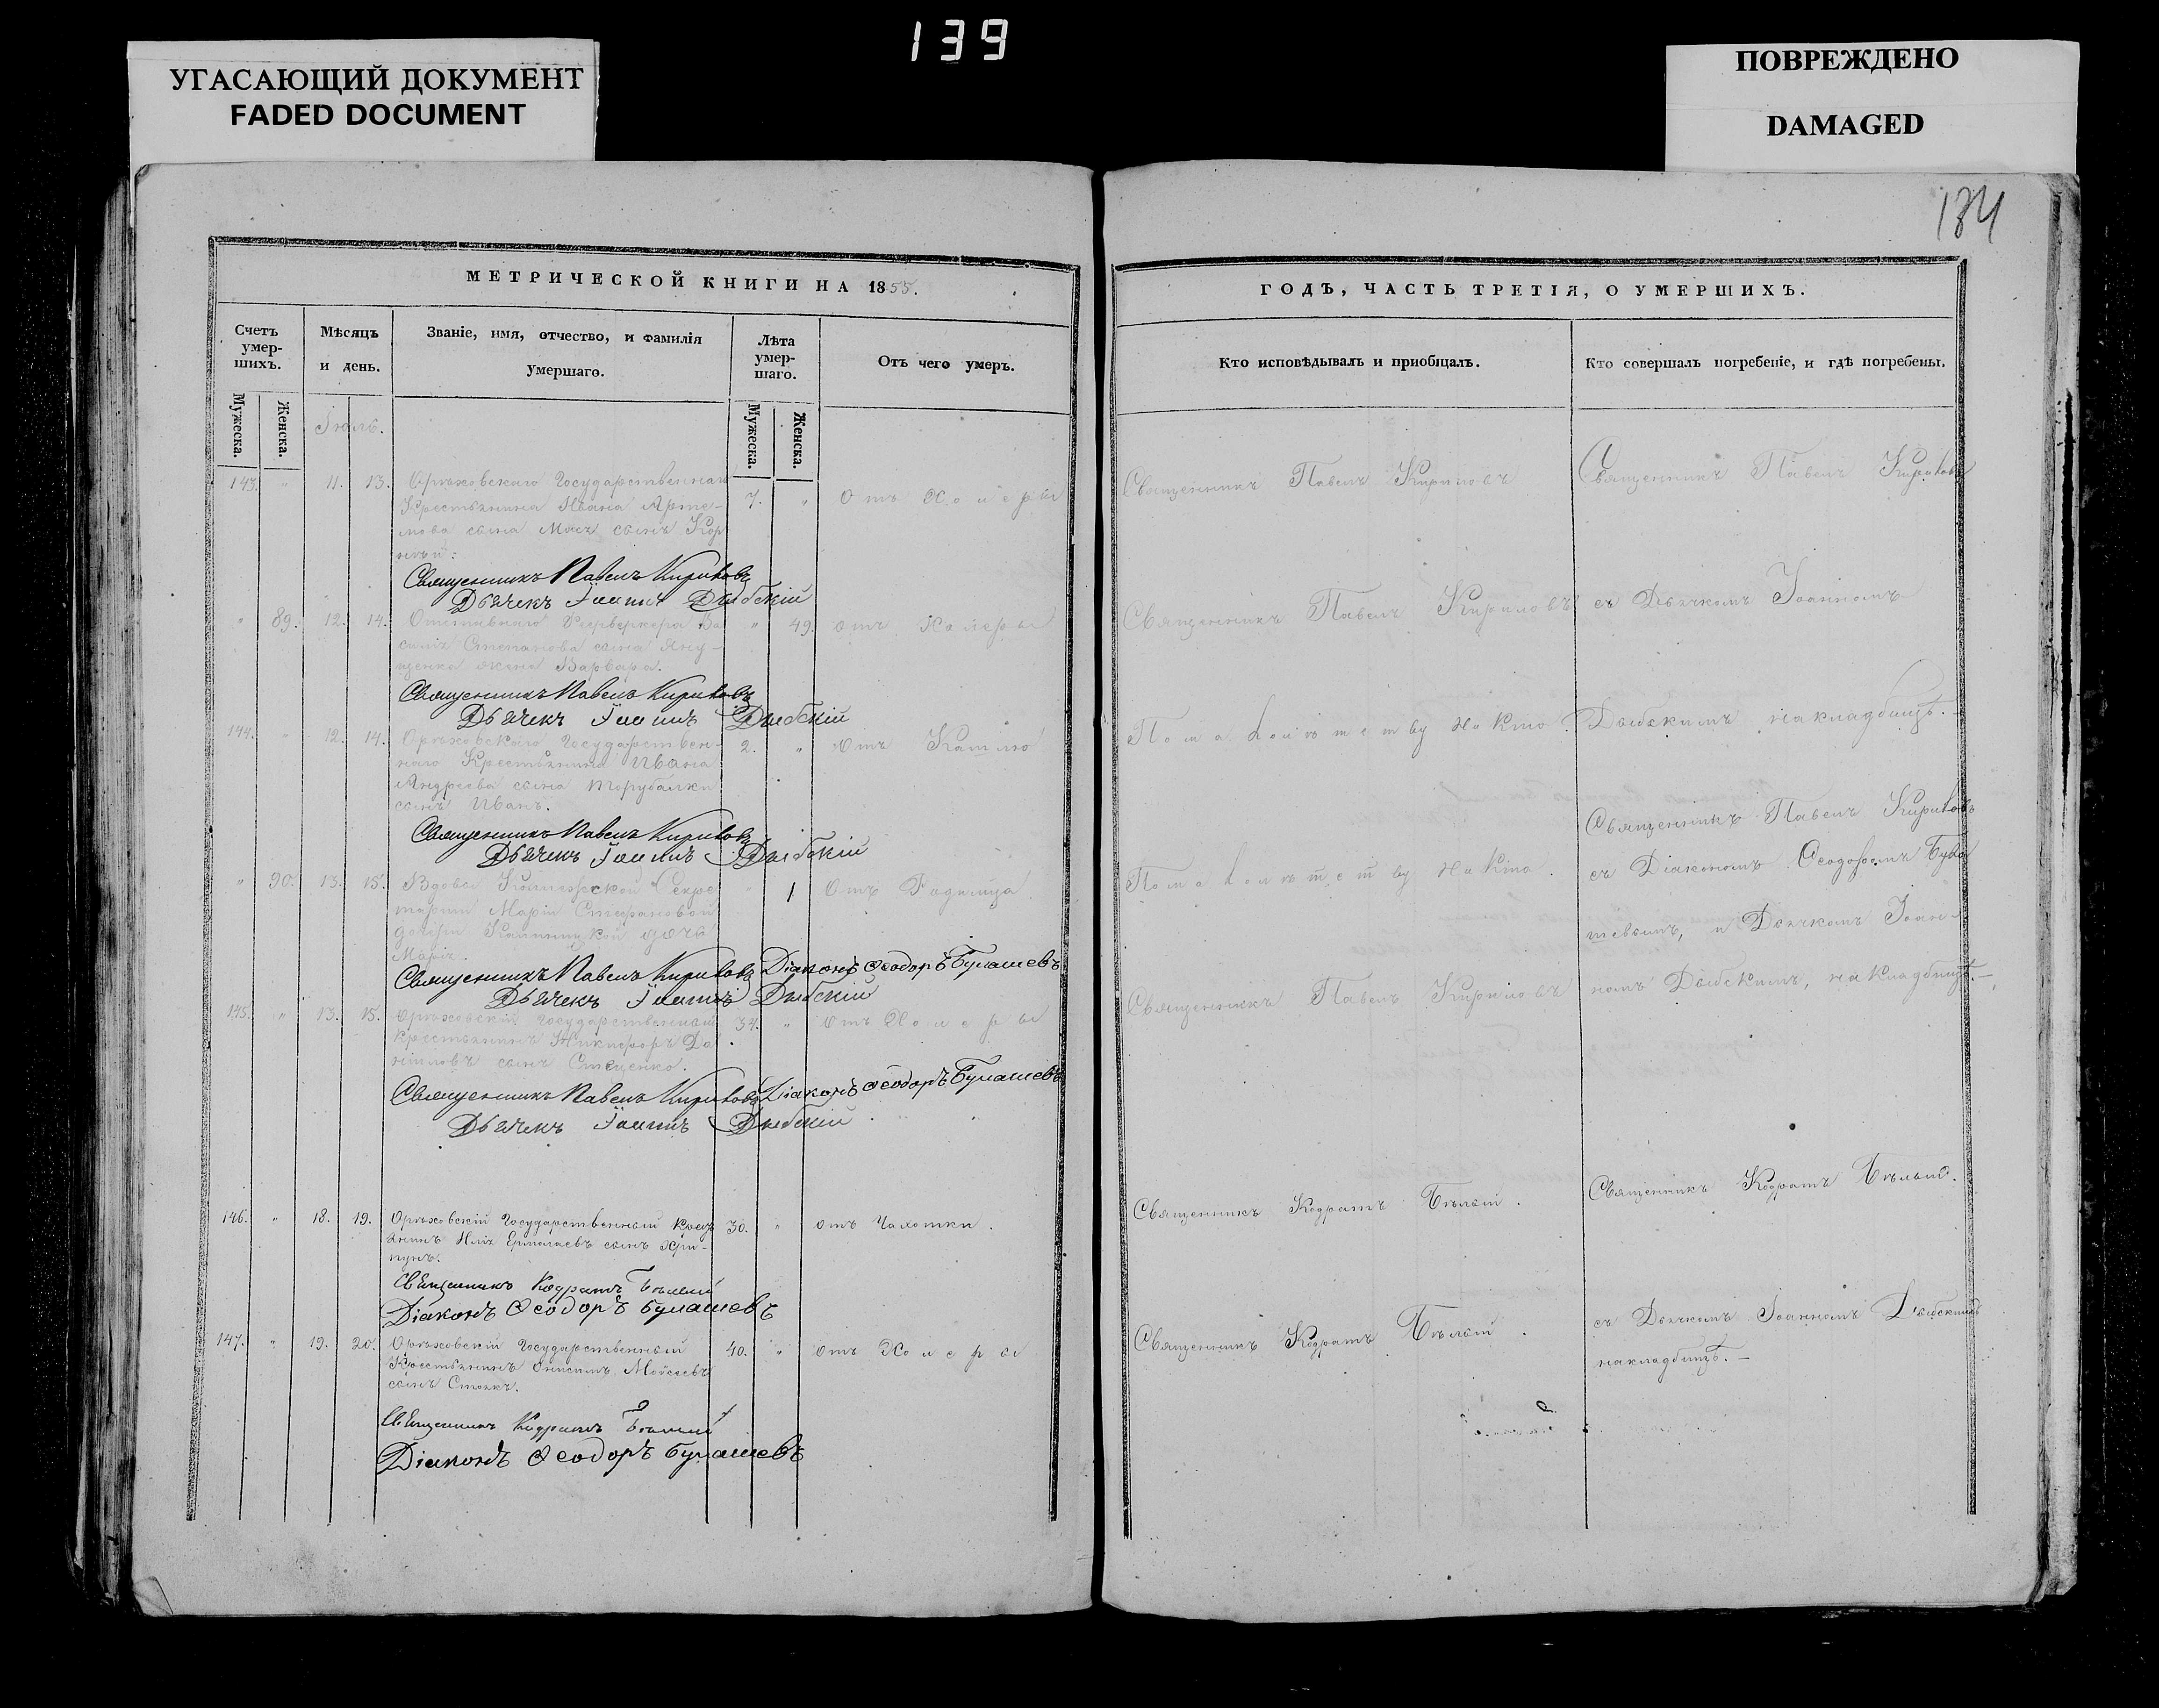 139
УГАСАЮЩИЙ ДОКУМЕНТ
FADED DOCUMENT
ПОВРЕЖДЕНО
DAMAGED
184
МЕТРИЧЕСКОЙ КНИГИ НА 1855.
ГОДЪ, ЧАСТЬ ТРЕТІЯ, О УМЕРШИХЪ.
Счетъ умер-шихъ.
Мужеска.
Женска.
Мѣсяцъ и день.
Званіе, имя, отчество, и фамилія умершаго.
Лѣта умер-шаго.
Мужеска.
Женска.
Отъ чего умеръ.
Кто исповѣдывалъ и пріобщалъ.
Кто совершалъ погребеніе, и гдѣ погребены.
Іюль.
143. " 11. 13. Орѣховскаго Государственнаго
Крестьянина Ивана Арте-
мова сына сынъ
7. " Отъ Холеры
Священникъ Павелъ Кириловъ
Священникъ Павелъ Кириловъ
Священникъ Павелъ Кириловъ
Дьячекъ Іоаннъ
" 89. 12. 14. Отставнаго Ва-
силія Степанова сына
жена Варвара.
" 49. отъ Холеры
Священникъ Павелъ Кириловъ
съ Дьячкомъ Іоанномъ
Священникъ Павелъ Кириловъ
Дьячекъ Іоаннъ
144. " 12. 14. Орѣховскаго Государствен-
наго Крестьянина Ивана
Андреева сына
сынъ Иванъ.
2. " Отъ Кашлю
По малолѣтству никто.
на кладбищѣ.
Священникъ Павелъ Кириловъ
Дьячекъ Іоаннъ
" 90. 13. 15. Вдовы Секре-
тарши Маріи Стефановой
дочери дочь
Марія.
" 1 Отъ Родимца
По малолѣтству никто.
Священникъ Павелъ Кириловъ
съ Діакономъ Ѳеодоромъ
и Дьячкомъ Іоан-
номъ на кладбищѣ.
Священникъ Павелъ Кириловъ Діаконъ Ѳеодоръ Булашевъ
Дьячекъ Іоаннъ
145. " 13. 15. Орѣховскій Государственный
Крестьянинъ Никифоръ Да-
ниловъ сынъ Стеценко.
34. " Отъ Холеры
Священникъ Павелъ Кириловъ
Священникъ Павелъ Кириловъ Діаконъ Ѳеодоръ Булашевъ
Дьячекъ Іоаннъ
146. " 18. 19. Орѣховскій Государственный Крес
янинъ Илія Ермолаевъ сынъ Хри-
пунъ.
30. " отъ Чахотки.
Священникъ Кодратъ Бѣлый.
Священникъ Кодратъ Бѣлый.
Священникъ Кодратъ Бѣлый
Діаконъ Ѳеодоръ Булашевъ
147. " 19. 20. Орѣховскій Государственный
Крестьянинъ Онисимъ Моисеевъ
сынъ
40. " отъ Холеры
Священникъ Кодратъ Бѣлый.
съ Дьячкомъ Іоанномъ
на кладбищѣ.
Священникъ Кодратъ Бѣлый
Діаконъ Ѳеодоръ Булашевъ